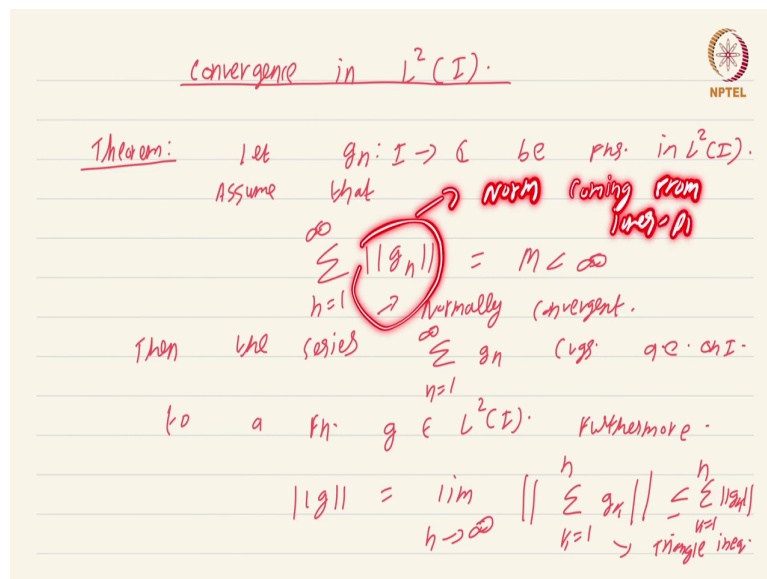 Convergence in L²(I).
NPTEL
Theorem: Let gₙ: I → ℂ be fns. in L²(I).
Assume that → Norm coming from
Inner-p
∞
∑ ||gₙ|| = M < ∞
n=1 → Normally convergent.
Then the series ∞ ∑ n=1 gₙ cvgs. a.e. on I.
to a fn. g ∈ L²(I). Furthermore.
||g|| = lim n→∞ || n ∑ k=1 gₖ || ≤ n ∑ k=1 ||gₖ||
→ Triangle ineq.